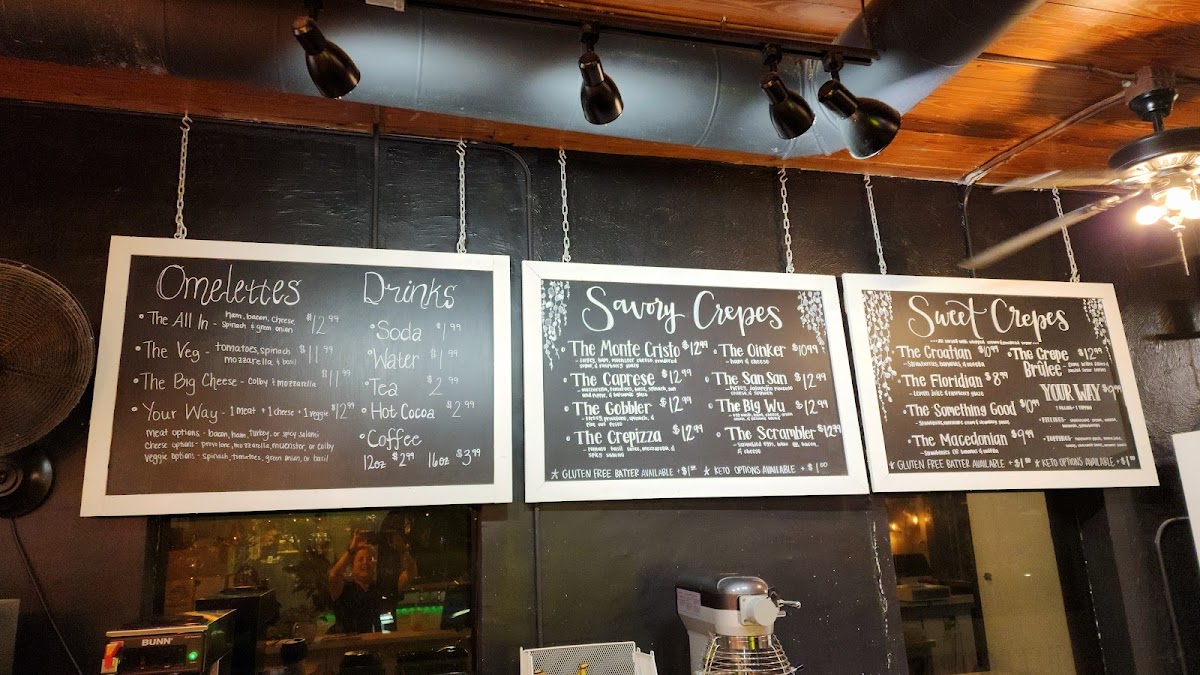 Omelettes
• The All In - ham, bacon, cheese, spinach & green onion $12.99
• The Veg - tomatoes, spinach mozzarella & basil $11.99
• The Big Cheese - colby & mozzarella $11.99
• Your Way - 1 meat + 1 cheese + 1 veggie $12.99
meat options - bacon, ham, turkey, or spicy salami
cheese options - mozzarella, muenster, or colby
veggie options - spinach, tomatoes, green onion, or basil
Drinks
• Soda $1.99
• Water $1.99
• Tea $2.99
• Hot Cocoa $2.99
• Coffee
12oz $2.99 16oz $3.99
Savory Crepes
• The Monte Cristo $12.99
- turkey, ham, muenster cheese
• The Caprese $12.99
- mozzarella, tomatoes, basil, spinach,
• The Gobbler $12.99
• The Crepizza $12.99
- tomato basil sauce, mozzarella, &
spicy salami
• The Oinker $10.99
- ham & cheese
• The San San $12.99
• The Big Wu $12.99
• The Scrambler $12.99
- scrambled eggs, ham or bacon,
& cheese
* GLUTEN FREE BATTER AVAILABLE + $1.50 * KETO OPTIONS AVAILABLE + $1.00
Sweet Crepes
• The Croatian $10.99
- Strawberries, bananas, & nutella
• The Floridian $8.99
- Lemon juice & raspberry glaze
• The Something Good $10.99
• The Macedonian $9.99
- Strawberries OR bananas & nutella
• The Crepe Brûlée $12.99
YOUR WAY $9.99
1 FILLING + 1 TOPPING
* GLUTEN FREE BATTER AVAILABLE + $1.50 * KETO OPTIONS AVAILABLE + $1.00
BUNN